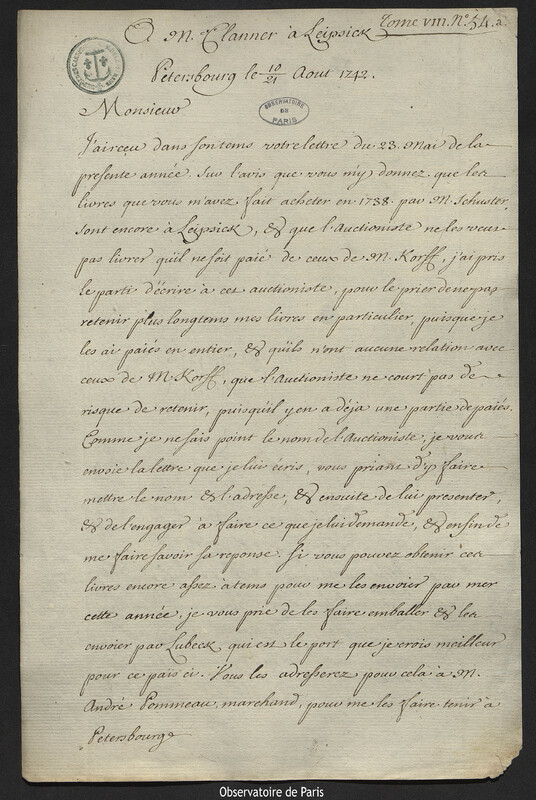 Tome VIII. N.º 54. a.
A M. Clanner à Leipsick
Petersbourg le 10/21 Aout 1742.
OBSERVATOIRE DE PARIS
Monsieur
J'ai reçu dans son tems votre lettre du 23. Mai de la
presente année. Sur l'avis que vous m'y donnez que les
livres que vous m'avez fait acheter en 1738. par M. Schuster,
sont encore à Leipsick, & que l'Auctioniste ne les veut
pas livrer qu'il ne soit paié de ceux de M. Korff, j'ai pris
le parti d'écrire à cet auctioniste, pour le prier de ne pas
retenir plus longtems mes livres en particulier, puisque je
les ai paiés en entier, & qu'ils n'ont aucune relation avec
ceux de M. Korff, que l'Auctioniste ne court pas de
risque de retenir, puisqu'il y en a déja une partie de paiés.
Comme je ne sais point le nom de l'Auctioniste, je vous
envoie la lettre que je lui écris, vous priant d'y faire
mettre le nom & l'adresse, & ensuite de lui presenter,
& de l'engager à faire ce que je lui demande, & enfin de
me faire savoir sa reponse. Si vous pouvez obtenir ces
livres encore assez à tems pour me les envoier par mer
cette année, je vous prie de les faire emballer & les
envoier par Lubeck qui est le port que je crois meilleur
pour ce païs ci. Vous les adresserez pour cela à M.
André Pommeau, marchand, pour me les faire tenir à
Petersbourg
Observatoire de Paris